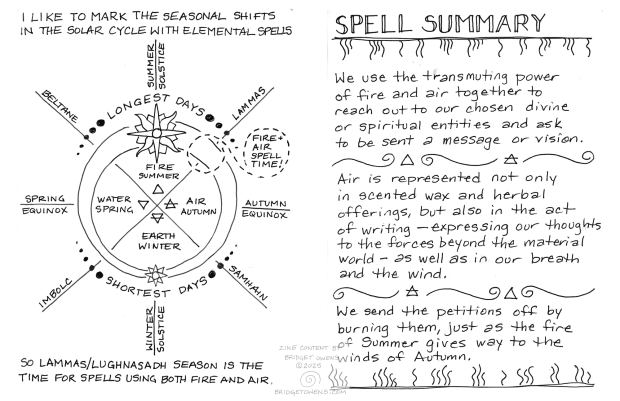 I LIKE TO MARK THE SEASONAL SHIFTS
IN THE SOLAR CYCLE WITH ELEMENTAL SPELLS
SUMMER
SOLSTICE
BELTANE
LONGEST DAYS
LAMMAS
FIRE+
AIR
SPELL
TIME!
FIRE
SUMMER
SPRING
EQUINOX
WATER
SPRING
AIR
AUTUMN
AUTUMN
EQUINOX
EARTH
WINTER
IMBOLC
SHORTEST DAYS
SAMHAIN
WINTER
SOLSTICE
SO LAMMAS/LUGHNASADH SEASON IS THE
TIME FOR SPELLS USING BOTH FIRE AND AIR.
SPELL SUMMARY
We use the transmuting power
of fire and air together to
reach out to our chosen divine
or spiritual entities and ask
to be sent a message or vision.
Air is represented not only
in scented wax and herbal
offerings, but also in the act
of writing – expressing our thoughts
to the forces beyond the material
world – as well as in our breath
and the wind.
We send the petitions off by
burning them, just as the fire
of Summer gives way to the
winds of Autumn.
ZINE CONTENT BY
BRIDGET OWENS
©2025
BRIDGETOWENS.COM